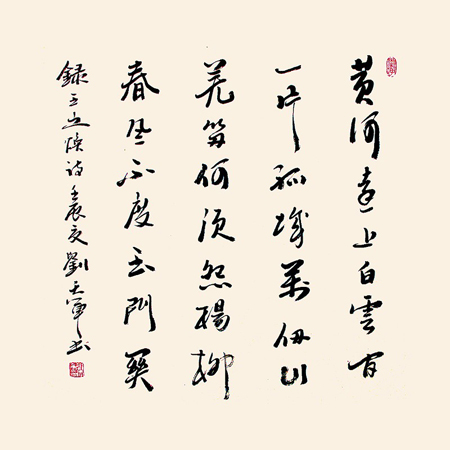 黄河遠上白雲間
一片孤城萬仞山
羌笛何須怨楊柳
春風不度玉門關
録王之渙詩壬辰夏劉軍书